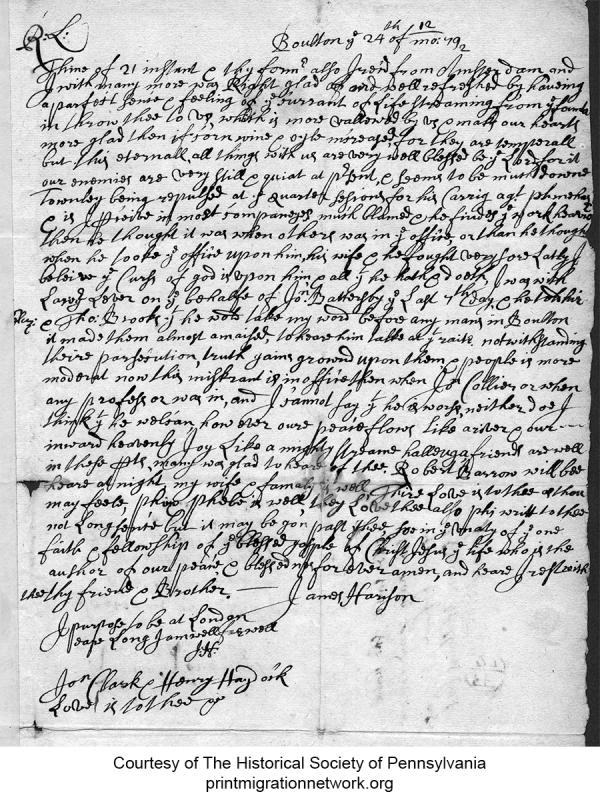 R: L:
Boulton ye 24th of 12 mo: 79/2
Thine of 21 instant & thy formr also I recd from Amsterdam and
with many more was Right glad of and well refreshed by haveing
a perfect sence & feeling of ye currant of Life streaming from ye
in throw thee to us, which is more vallewed by us & makes our hearts
more glad then if Corn wine & oyle increased for they are temperall
but this eternall, all things with us are very well blessed be ye Lord for it
our enemies are very still & quiat at prsent, & seems to be much downe
Townley being repulsed at ye quarter sessions for his Carrig agt
& is in most companeyes much blamed & he findes ye work heavier
then he thought it was when others was in ye office or than he thought
when he tooke ye office upon him, his wife & he fought very sore Latly I
beleive ye Curss of god is upon him & all yt he hath & doeth, I was with
Lawr Lever on ye behalfe of Jon Battersby ye Last 7th day, &
& Tho: Brooks yt he wold take my word before any mans in Boulton
it made them almost amaised, to heare him talke at yt raite, notwithstanding
theire parsecution, truth gains ground upon them & people is more
moderat now this miskrant is in office then when Jon Collier, or when
any profesor was in, and I cannot say yt he is worss, neither doe I
think yt he well can, how ever oure peace flows Like a river & our
inward heavenly Joy Like a mighty streame halleluya friends are well
in these pts, many was glad to heare of thee, Robert Barrow will bee
heare at night, my wife & famaly is well there Love is to thee as thou
may feele, & Phebe is well, they Love thee also writ to thee
not Long sence but it may be gon past thee soe in ye unaty of ye one
faith & fellowship of ye blessed gosple of Christ Jesus ye life who is the
author of our peace & blessednes for ever amen, and heare I rest with
thee thy friend & Brother. James Harison
I purpose to be at London
ere Long I am well farewell
J H:
Jon Clark & Henry Haydock
Love is to thee
Courtesy of The Historical Society of Pennsylvania
printmigrationnetwork.org